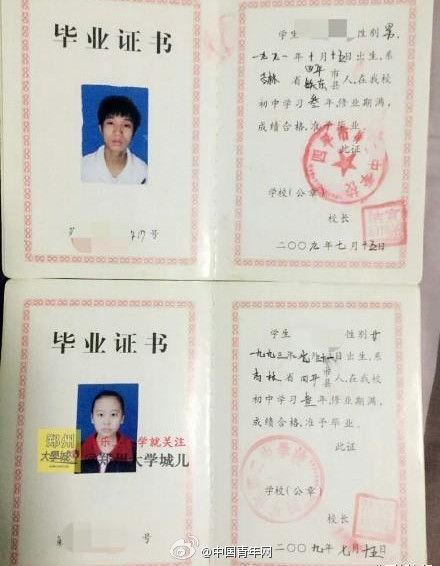 毕业证书
学生 性别 男,
一九九一年十月十五日出生,系
吉林省四平市铁东县人,在我校
初中学习叁年,修业期满,
成绩合格,准予毕业。
此证
学校(公章)
校长
二〇〇九年七月十五日
号
毕业证书
学生 性别 女
吉林省四平市县人,在我校
初中学习叁年,修业期满,
成绩合格,准予毕业。
此证
学校(公章)
校长
二〇〇九年七月十五日
第 号
郑州
大學城
乐 學就关注
郑州大学城儿
@中国青年网